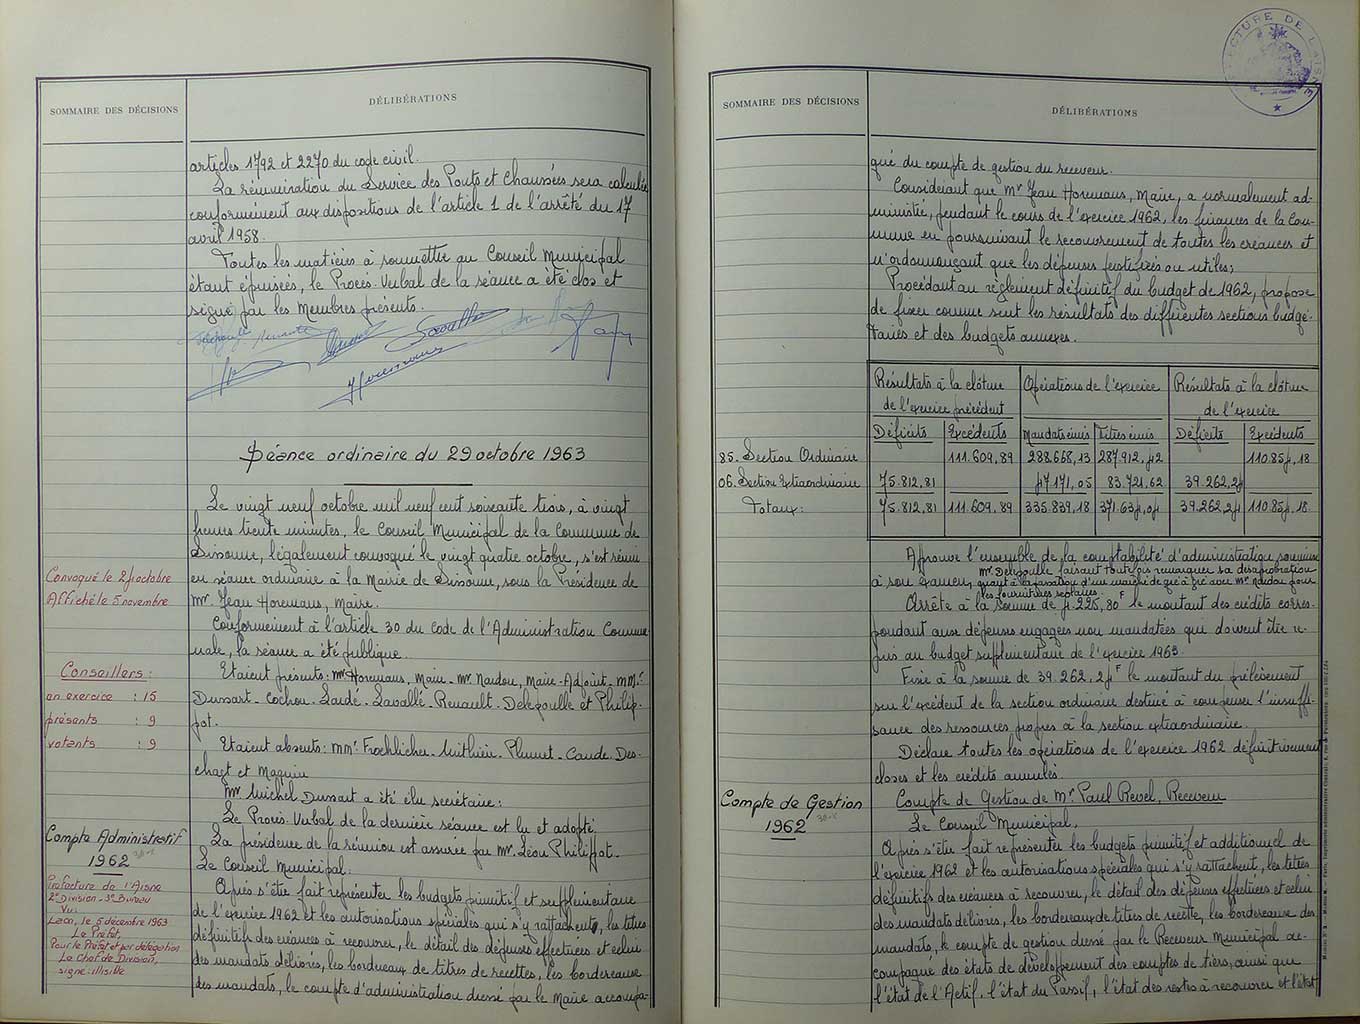 SOMMAIRE DES DÉCISIONS
DÉLIBÉRATIONS
articles 1792 et 2270 du code civil.
La rémunération du Service des Ponts et Chaussées sera calculée
conformément aux dispositions de l'article 1 de l'arrêté du 17
avril 1958.
Toutes les matières à soumettre au Conseil Municipal
étant épuisées, le Procès-Verbal de la séance a été clos et
signé par les Membres présents.
Séance ordinaire du 29 octobre 1963
Le vingt neuf octobre mil neuf cent soixante trois, à vingt
heures trente minutes, le Conseil Municipal de la Commune de
Sissonne, légalement convoqué le vingt quatre octobre, s'est réuni
en séance ordinaire à la Mairie de Sissonne, sous la Présidence de
Mr. Jean Horemans, Maire.
Conformément à l'article 30 du code de l'Administration Commu-
nale, la séance a été publique.
Etaient présents: Mr Horemans, Maire - Mr. Naudou, Maire-Adjoint - MM.
Dussart - Cochou - Lardé - Lavallé - Renault - Delepoulle et Philip-
pot.
Etaient absents: MM. Froehlicher - Plumet - Caude - Des-
et Maquin
Mr Michel Dussart a été élu secrétaire:
Le Procès-Verbal de la dernière séance est lu et adopté.
La présidence de la réunion est assurée par Mr. Léon Philippot.
Le Conseil Municipal:
Après s'être fait représenter les budgets primitif et supplémentaire
de l'exercice 1962 et les autorisations spéciales qui s'y rattachent, les titres
définitifs des créances à recouvrer, le détail des dépenses effectuées et celui
des mandats délivrés, les bordereaux de titres de recettes, les bordereaux
des mandats, le compte d'administration dressé par le Maire accompa-
Convoqué le 24 octobre
Affiché le 5 novembre
Conseillers:
en exercice : 15
présents : 9
votants : 9
Compte Administratif
1962
Préfecture de l'Aisne
2e Division - 3e Bureau
Vu:
Laon, le 5 décembre 1963
Le Préfet,
Pour le Préfet et par délégation
Le Chef de Division,
signé: illisible
PRÉFECTURE DE L'AISNE
SOMMAIRE DES DÉCISIONS
DÉLIBÉRATIONS
gné du compte de gestion du receveur.
Considérant que Mr Jean Horemans, Maire, a normalement ad-
ministré, pendant le cours de l'exercice 1962, les finances de la Com-
mune en poursuivant le recouvrement de toutes les créances et
n'ordonnançant que les dépenses justifiées ou utiles;
Procédant au règlement définitif du budget de 1962, propose
de fixer comme suit les résultats des différentes sections budgé-
taires et des budgets annexes.
Résultats à la clôture de l'exercice précédent | Opérations de l'exercice | Résultats à la clôture de l'exercice
Déficits | Excédents | Mandats émis | Titres émis | Déficits | Excédents
85. Section Ordinaire | 111.609,89 | 288.668,13 | 287.912,42 | 110.854,18
06. Section Extraordinaire | 75.812,81 | 47.171,05 | 83.721,62 | 39.262,24
Totaux: | 75.812,81 | 111.609,89 | 335.839,18 | 371.634,04 | 39.262,24 | 110.854,18
Approuve l'ensemble de la comptabilité d'administration soumise
Mr. Delepoulle faisant toutefois remarquer sa désapprobation
à son examen, quant à la passation d'un marché de gré à gré avec Mr. Naudou pour
les fournitures scolaires.
Arrête à la somme de 4.225,80F le montant des crédits corres-
pondant aux dépenses engagées non mandatées qui doivent être re-
pris au budget supplémentaire de l'exercice 1963
Fixe à la somme de 39.262,24F le montant du prélèvement
sur l'excédent de la section ordinaire destiné à compenser l'insuffi-
sance des ressources propres à la section extraordinaire.
Déclare toutes les opérations de l'exercice 1962 définitivement
closes et les crédits annulés.
Compte de Gestion
1962
Compte de Gestion de Mr. Paul Revel, Receveur
Le Conseil Municipal,
Après s'être fait représenter les budgets primitif et additionnel de
l'exercice 1962 et les autorisations spéciales qui s'y rattachent, les titres
définitifs des créances à recouvrer, le détail des dépenses effectuées et celui
des mandats délivrés, les bordereaux de titres de recette, les bordereaux des
mandats, le compte de gestion dressé par le Receveur Municipal ac-
compagné des états de développement des comptes de tiers, ainsi que
l'état de l'Actif, l'état du Passif, l'état des restes à recouvrer et l'état